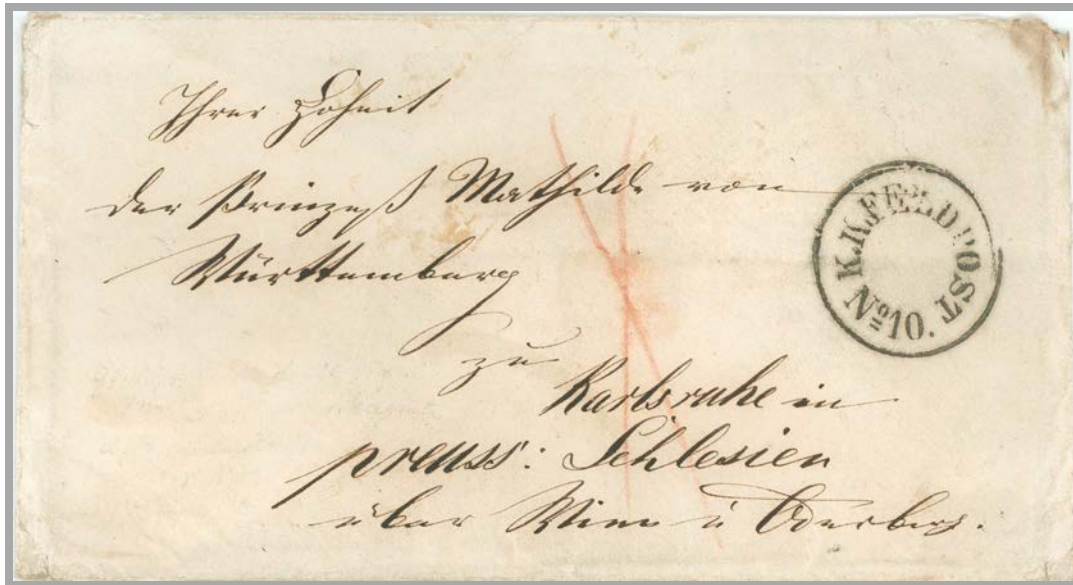 Ihrer Hoheit
der Prinzeß Mathilde von
Württemberg
zu
Karlsruhe in
preuss: Schlesien
über Wien u Oderberg.
K.K.FELDPOST No 10.